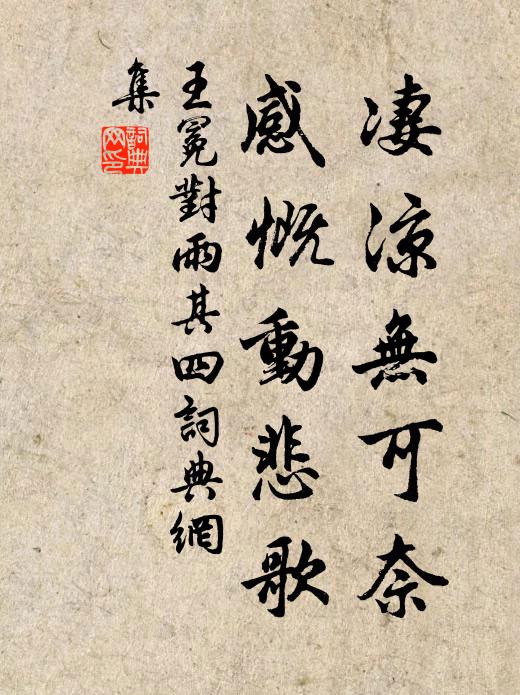 凄涼無可奈
感慨動悲歌
王冕對雨其四詞典網
集
詞典网印